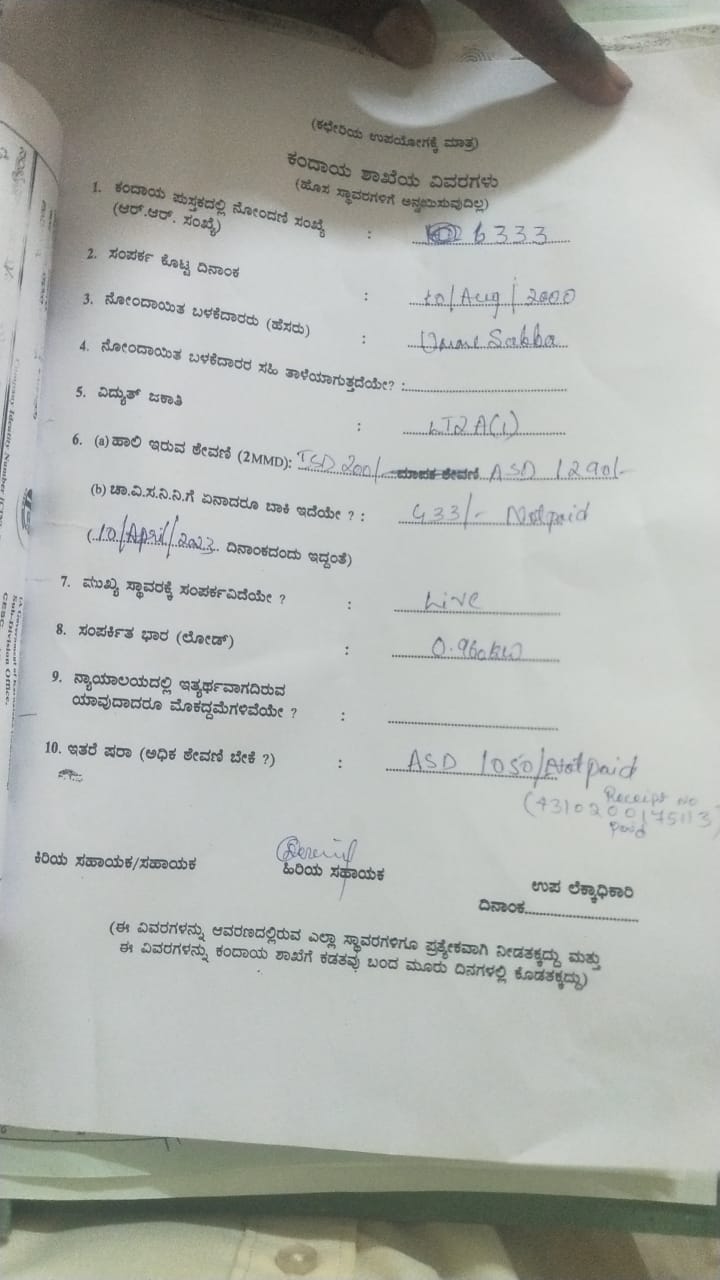 (ಕಛೇರಿಯ ಉಪಯೋಗಕ್ಕೆ ಮಾತ್ರ)
ಕಂದಾಯ ಶಾಖೆಯ ವಿವರಗಳು
(ಹೊಸ ಸ್ಥಾವರಗಳಿಗೆ ಅನ್ವಯಿಸುವುದಿಲ್ಲ)
1. ಕಂದಾಯ ಪುಸ್ತಕದಲ್ಲಿ ನೋಂದಣಿ ಸಂಖ್ಯೆ
(ಆರ್.ಆರ್. ಸಂಖ್ಯೆ) : 6333
2. ಸಂಪರ್ಕ ಕೊಟ್ಟ ದಿನಾಂಕ : 10/Aug/2000
3. ನೋಂದಾಯಿತ ಬಳಕೆದಾರರು (ಹೆಸರು) : Sabba
4. ನೋಂದಾಯಿತ ಬಳಕೆದಾರರ ಸಹಿ ತಾಳೆಯಾಗುತ್ತದೆಯೇ? :
5. ವಿದ್ಯುತ್ ಜಕಾತಿ : LT2A(1)
6. (a) ಹಾಲಿ ಇರುವ ಠೇವಣಿ (2MMD): ISD 200/- ಮಾಪಕ ಠೇವಣಿ ASD 1290/-
(b) ಚಾ.ವಿ.ಸ.ನಿ.ನಿ.ಗೆ ಏನಾದರೂ ಬಾಕಿ ಇದೆಯೇ ? : 433/- Not paid
(10/April/2023 ದಿನಾಂಕದಂದು ಇದ್ದಂತೆ)
7. ಮುಖ್ಯ ಸ್ಥಾವರಕ್ಕೆ ಸಂಪರ್ಕವಿದೆಯೇ ? : Live
8. ಸಂಪರ್ಕಿತ ಭಾರ (ಲೋಡ್) : 0.960kw
9. ನ್ಯಾಯಾಲಯದಲ್ಲಿ ಇತ್ಯರ್ಥವಾಗದಿರುವ
ಯಾವುದಾದರೂ ಮೊಕದ್ದಮೆಗಳಿವೆಯೇ ? :
10. ಇತರೆ ಷರಾ (ಅಧಿಕ ಠೇವಣಿ ಬೇಕೆ ?) : ASD 1050/Not paid
Receipt No
(4310200175113)
Paid
ಕಿರಿಯ ಸಹಾಯಕ/ಸಹಾಯಕ
ಹಿರಿಯ ಸಹಾಯಕ
ಉಪ ಲೆಕ್ಕಾಧಿಕಾರಿ
ದಿನಾಂಕ
(ಈ ವಿವರಗಳನ್ನು ಆವರಣದಲ್ಲಿರುವ ಎಲ್ಲಾ ಸ್ಥಾವರಗಳಿಗೂ ಪ್ರತ್ಯೇಕವಾಗಿ ನೀಡತಕ್ಕದ್ದು ಮತ್ತು
ಈ ವಿವರಗಳನ್ನು ಕಂದಾಯ ಶಾಖೆಗೆ ಕಡತವು ಬಂದ ಮೂರು ದಿನಗಳಲ್ಲಿ ಕೊಡತಕ್ಕದ್ದು)